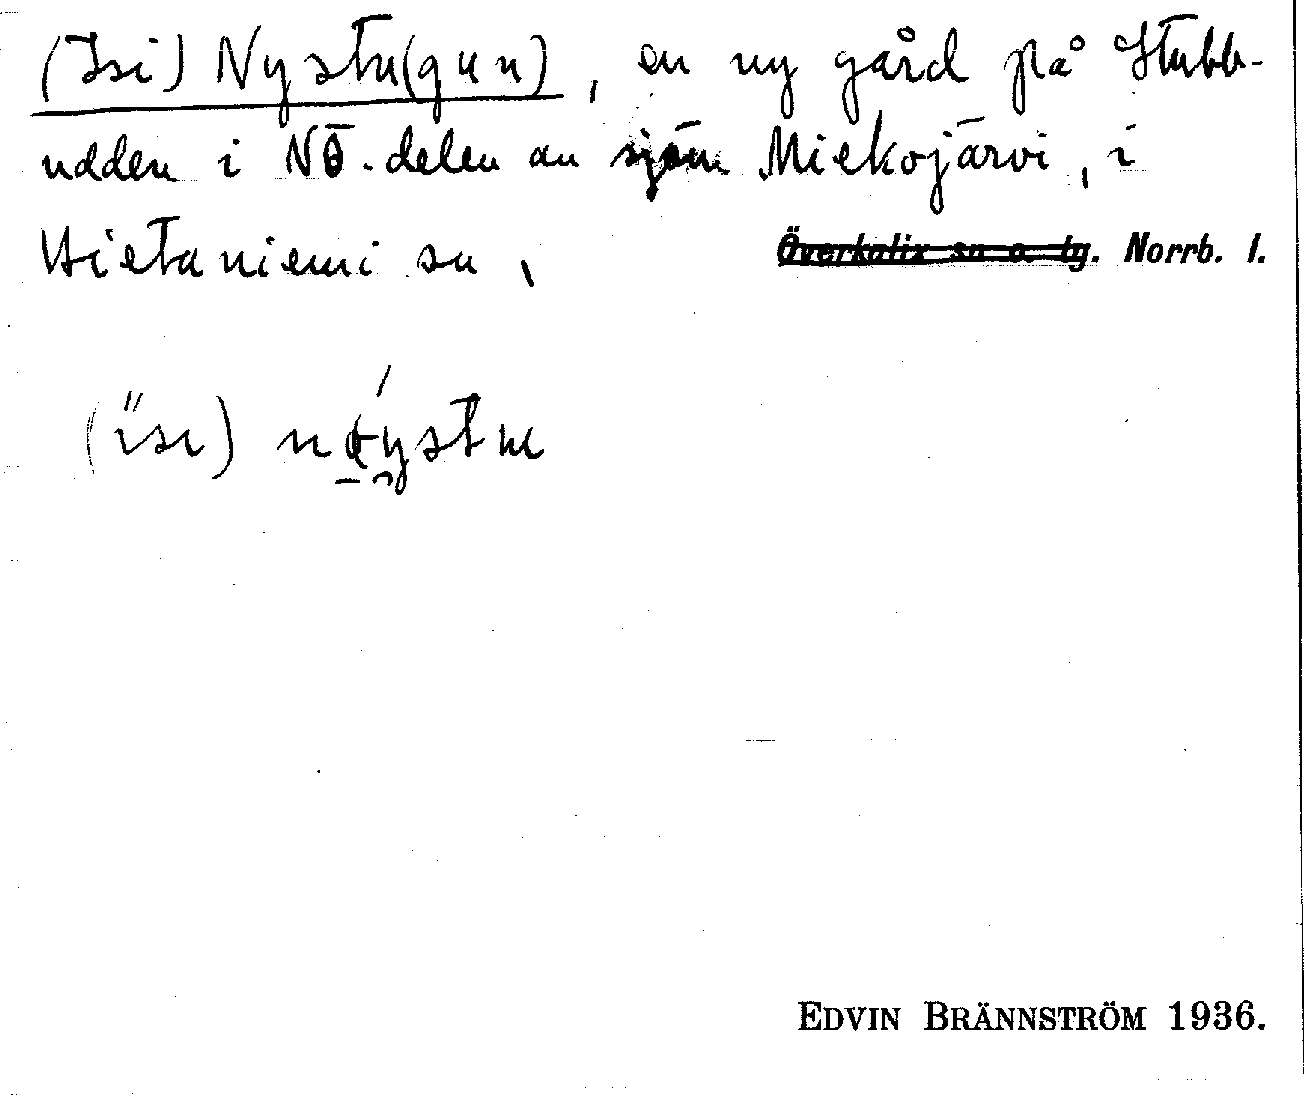 (Isi) Nystu(gun), en ny gård på Stubb-
udden i NÖ.delen av sjön Miekojärvi, i
Hietaniemi sn, Överkalix sn o. tg. Norrb. l.
(isi) nøystu
EDVIN BRÄNNSTRÖM 1936.